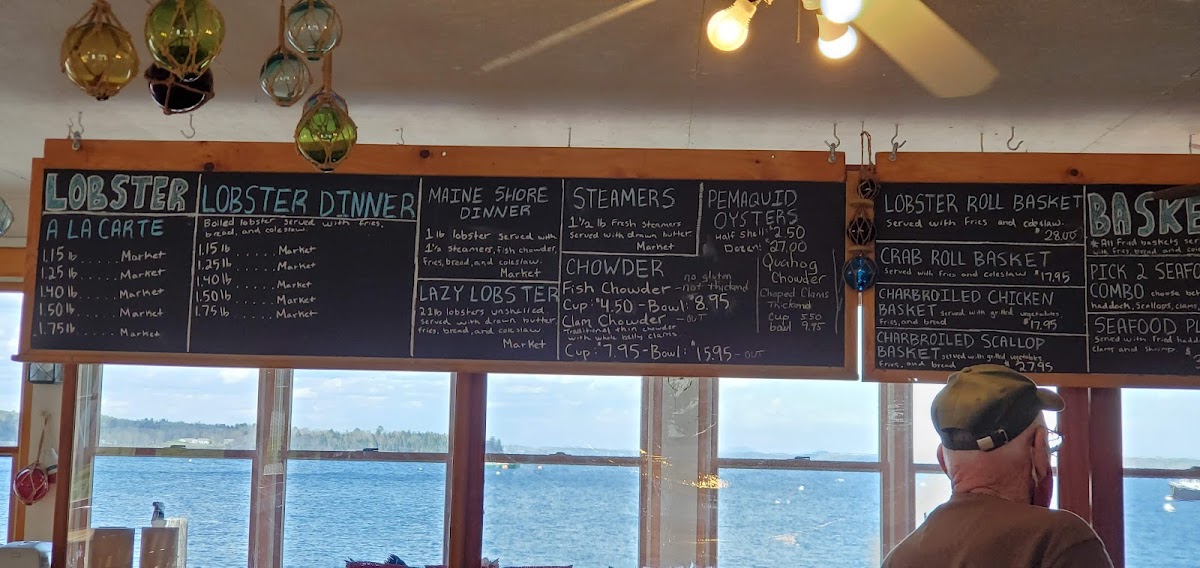 LOBSTER
A LA CARTE
1.15 lb ...... Market
1.25 lb ...... Market
1.40 lb ...... Market
1.50 lb ...... Market
1.75 lb ...... Market
LOBSTER DINNER
Boiled lobster served with fries,
bread, and coleslaw.
1.15 lb .... Market
1.25 lb .... Market
1.40 lb .... Market
1.50 lb .... Market
1.75 lb .... Market
MAINE SHORE
DINNER
1 lb lobster served with
1½ steamers, fish chowder,
fries, bread, and coleslaw.
Market
LAZY LOBSTER
2 1 lb lobsters unshelled
served with drawn butter,
fries, bread, and coleslaw
Market
STEAMERS
1½ lb fresh steamers
served with drawn butter
Market
CHOWDER
no gluten
Fish Chowder - not thickend
Cup: $4.50 - Bowl: $8.95
Clam Chowder - OUT
Traditional thin chowder
with whole belly clams
Cup: $7.95 - Bowl: $15.95 - OUT
PEMAQUID
OYSTERS
Half Shell: $2.50
Dozen: $27.00
Quahog
Chowder
Choped Clams
Thickend
Cup 5.50
bowl 9.95
LOBSTER ROLL BASKET
Served with fries and coleslaw.
$28.00
CRAB ROLL BASKET
served with fries and coleslaw $17.95
CHARBROILED CHICKEN
BASKET served with grilled vegetables,
fries, and bread $17.95
CHARBROILED SCALLOP
BASKET served with grilled vegetables,
fries, and bread $27.95
BASKE
* All fried baskets se
with fries, bread and co
PICK 2 SEAFO
COMBO choose bet
haddock, Scallops, clams,
SEAFOOD P
Served with fried hadd
clams and shrimp $